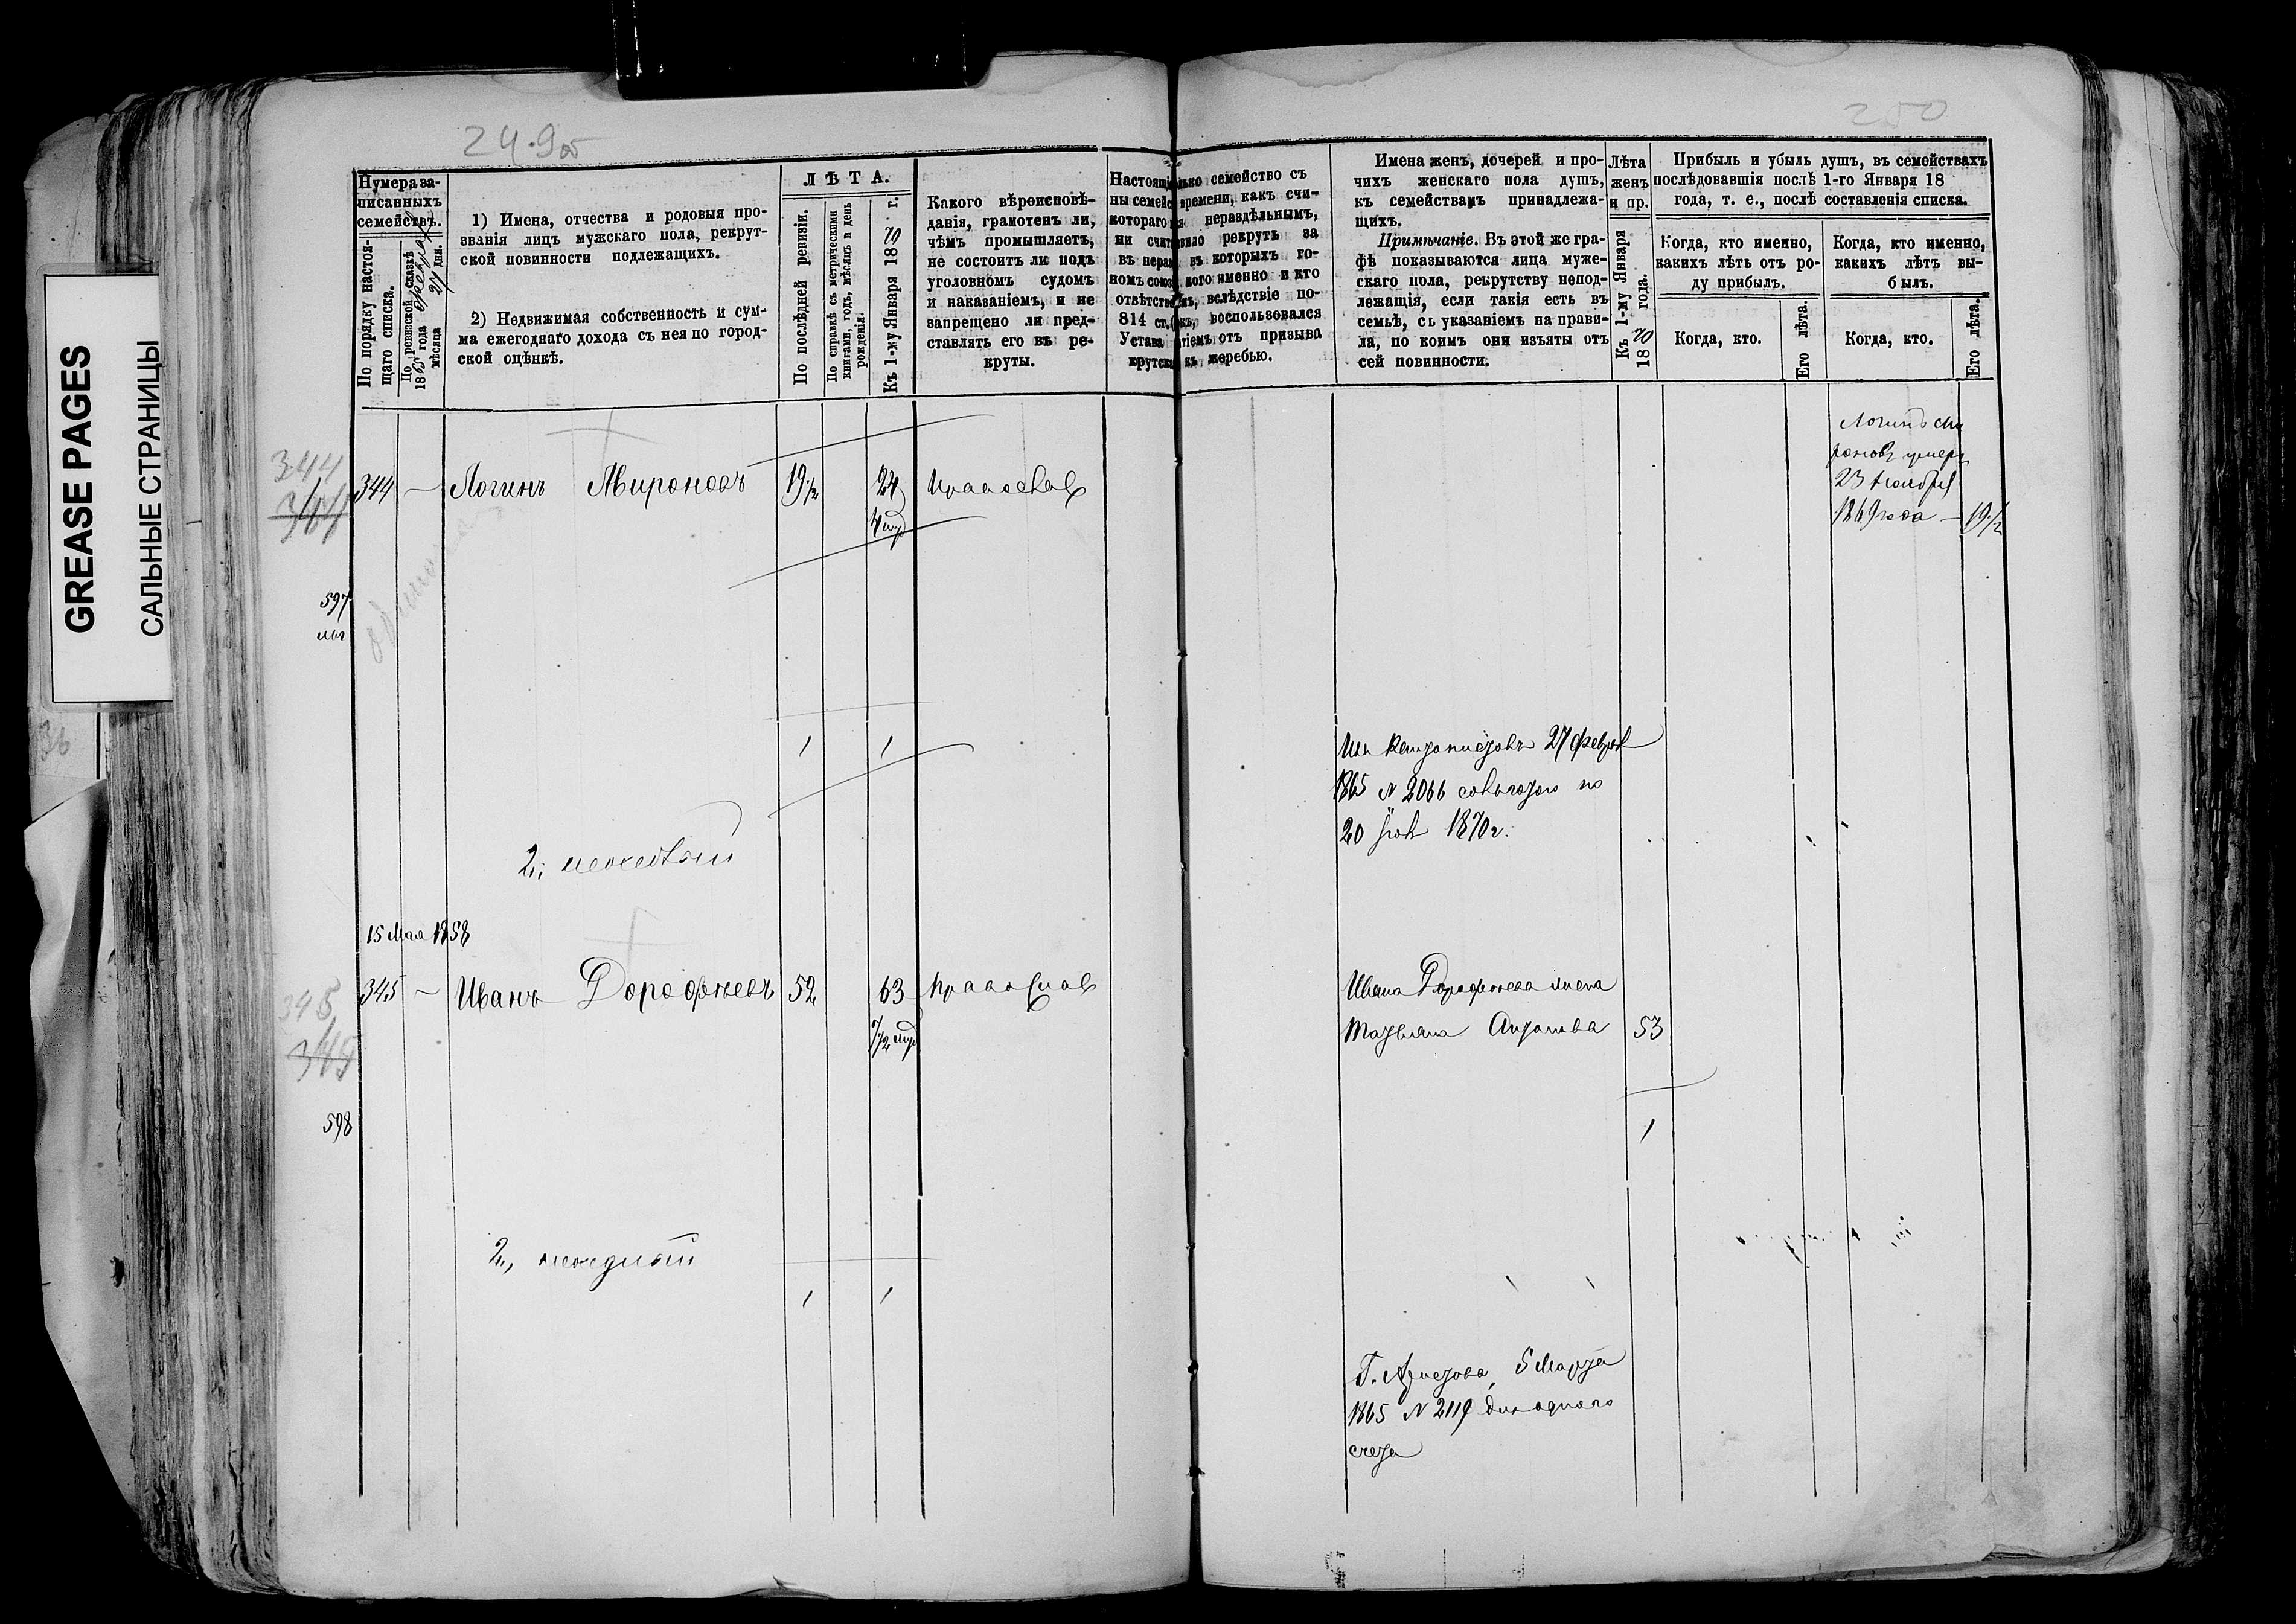 GREASE PAGES
САЛЬНЫЕ СТРАНИЦЫ
249об
250
Нумера за-
писанныхъ
семействъ.
По порядку настоя-
щаго списка.
По ревизской сказкѣ
1865 года февраля
мѣсяца 27 дня.
1) Имена, отчества и родовыя про-
званія лицъ мужскаго пола, рекрут-
ской повинности подлежащихъ.
2) Недвижимая собственность и сум-
ма ежегоднаго дохода съ нея по город-
ской оцѣнкѣ.
ЛѢТА.
По послѣдней ревизіи.
По справкѣ съ метрическими
книгами, годъ, мѣсяцъ и день
рожденія.
Къ 1-му Января 1870 г.
Какого вѣроисповѣ-
данія, грамотенъ ли,
чѣмъ промышляетъ,
не состоитъ ли подъ
уголовномъ судомъ
и наказаніемъ, и не
запрещено ли пред-
ставлять его въ ре-
круты.
Настоящ
ны семейс
котораго
ни счит
въ нераз
номъ союз
отвѣтстве
814 ст.
Устава
крутск
лько семейство съ
времени, какъ счи-
я нераздѣльнымъ,
вило рекрутъ за
въ которыхъ го-
кого именно и кто
ъ, вслѣдствіе по-
къ, воспользовался
тіемъ отъ призыва
къ жеребью.
Имена женъ, дочерей и про-
чихъ женскаго пола душъ,
къ семействамъ принадлежа-
щихъ.
Примѣчаніе. Въ этой же гра-
фѣ показываются лица муже-
скаго пола, рекрутству непод-
лежащія, если такія есть въ
семьѣ, съ указаніемъ на прави-
ла, по коимъ они изъяты отъ
сей повинности.
Лѣта
женъ
и пр.
Къ 1-му Января
1870 года.
Прибыль и убыль душъ, въ семействахъ
послѣдовавшія послѣ 1-го Января 18
года, т. е., послѣ составленія списка.
Когда, кто именно,
какихъ лѣтъ отъ ро-
ду прибылъ.
Когда, кто.
Его лѣта.
Когда, кто именно,
какихъ лѣтъ вы-
былъ.
Когда, кто.
Его лѣта.
344
344
344 — Логинъ Мироновъ 19 1/2 24 Православ
Логинъ Ми
роновъ умеръ
23 Ноября
1869 года — 19 1/2
597
1 1
27 Феврал
1865 N 2066 по
20 1870 г.
2,,
15 Мая 1858
345
345
345 — Иванъ Дорофѣевъ 52 63 Православ
7 1/2
Ивана Дорофѣева жена
Татьяна 53
598
1
2,,
1 1
5 Марта
1865 N 2119
счета